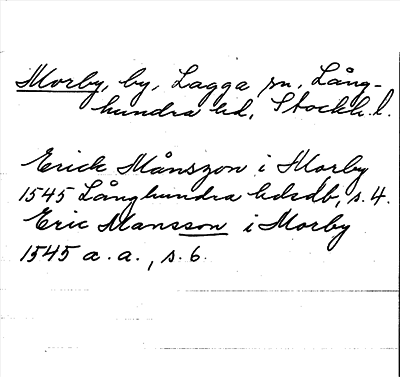 Morby, by, Lagga sn, Lång-
hundra hd, Stockh. l.
Erick Månszon i Morby
1545 Långhundra hdsdb, s. 4.
Eric Mansson i Morby
1545 a. a., s. 6.